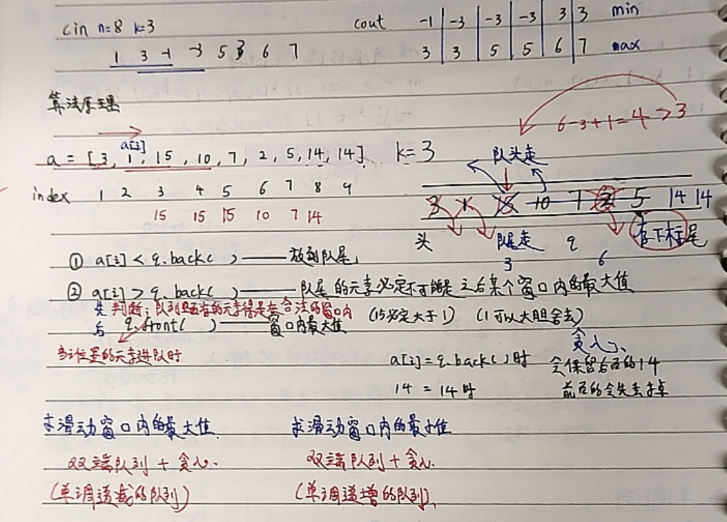 cin n=8 k=3
1 3 -1 -3 5 3 6 7
cout -1 -3 -3 -3 3 3 min
3 3 5 5 6 7 max
算法原理
a[i]
a = [3, 1, 15, 10, 7, 2, 5, 14, 14]. k=3
index 1 2 3 4 5 6 7 8 9
15 15 15 10 7 14
6-3+1=4>3
队头走
3 1 15 10 7 2 5 14 14
头 队尾走 q 存下标 尾
3 6
① a[i] < q.back( ) —— 放到队尾
② a[i] > q.back( ) —— 队尾的元素必定不可能是之后某个窗口内的最大值
先判断:队列里面有的元素得是在合法的窗口内
后 q.front( ) —— 窗口内最大值 (15必定大于1) (1可以大胆舍去)
当i位置的元素进队时
贪心、
a[i]=q.back( )时 会保留后面的14
14 = 14时 前面的会失去掉
求滑动窗口内的最大值 求滑动窗口内的最小值
双端队列 + 贪心. 双端队列 + 贪心.
(单调递减的队列) (单调递增的队列).